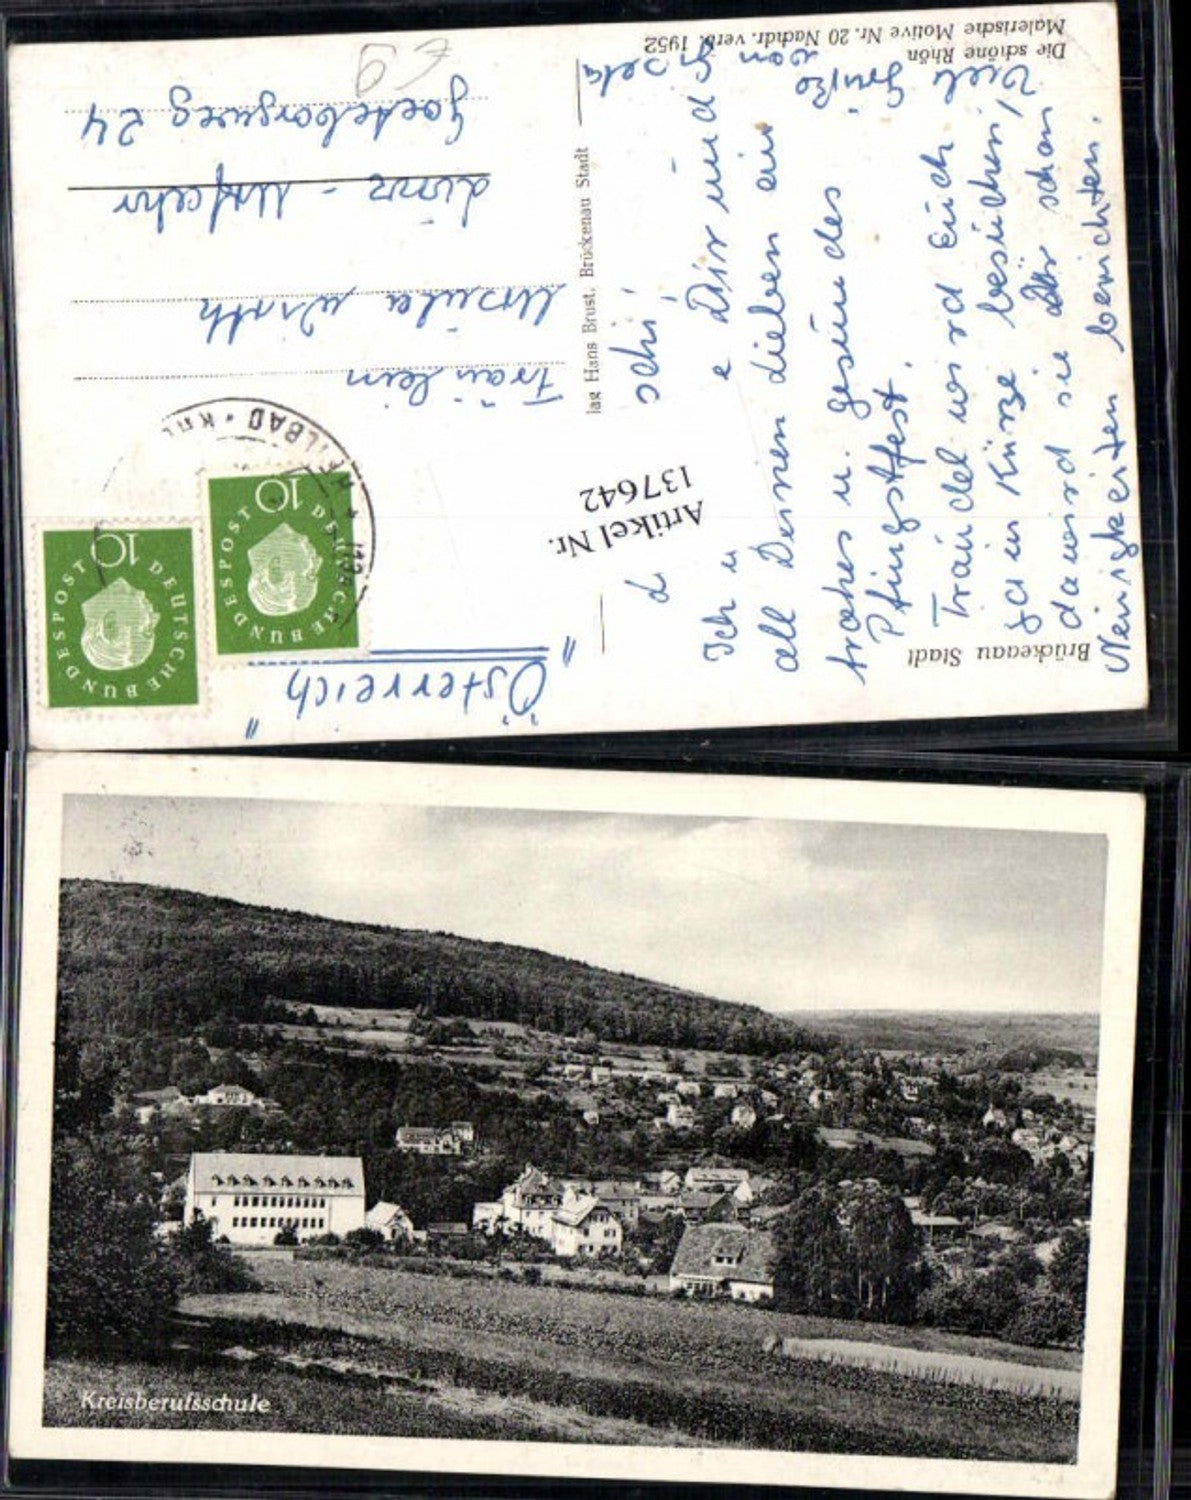 Brückenau Stadt
Die schöne Rhön
Malerische Motive Nr. 20 Nachdr. verb. 1952
Ich
e Dir und
all Deinen Lieben ein
frohes u. gesundes
Pfingstfest.
Traudel word Euch
ja in Kürze besuchen,
da wird sie Dir schon
Neuigkeiten berichten.
Viele Grüße
von Gisela
Artikel Nr.
137642
lag Hans Brust. Brückenau Stadt
DEUTSCHE BUNDESPOST
10
DEUTSCHE BUNDESPOST
10
Fräulein
Ursula Wirth
Linz - Urfahr
Goeteborgweg 24
"Österreich"
€ 9
Kreisberufsschule